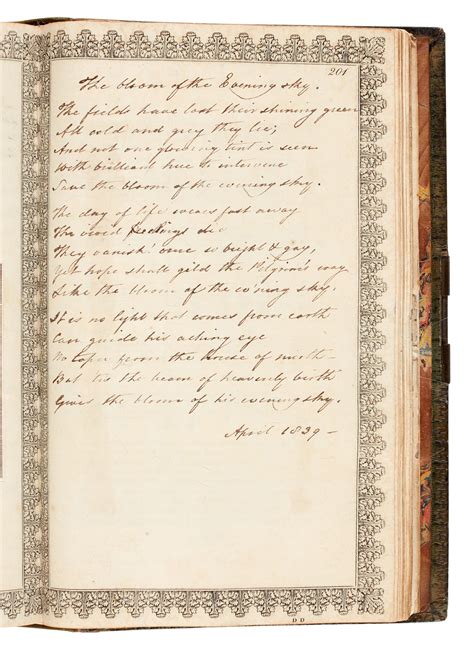 201
The bloom of the Evening sky.
The fields have lost their shining green
All cold and grey they lie;
And not one glowing tint is seen
With brilliant hue to intervene
Save the bloom of the evening sky.
The day of life wears fast away
The vivid feelings die
They vanish once so bright & gay,
Yet hope shall gild the Pilgrim's way
Like the bloom of the ev'ning sky.
It is no light that comes from earth
Can guide his aching eye
No taper from the house of mirth-
But tis the beam of heavenly birth
Gives the bloom of his evening sky.
April 1839 -
D D